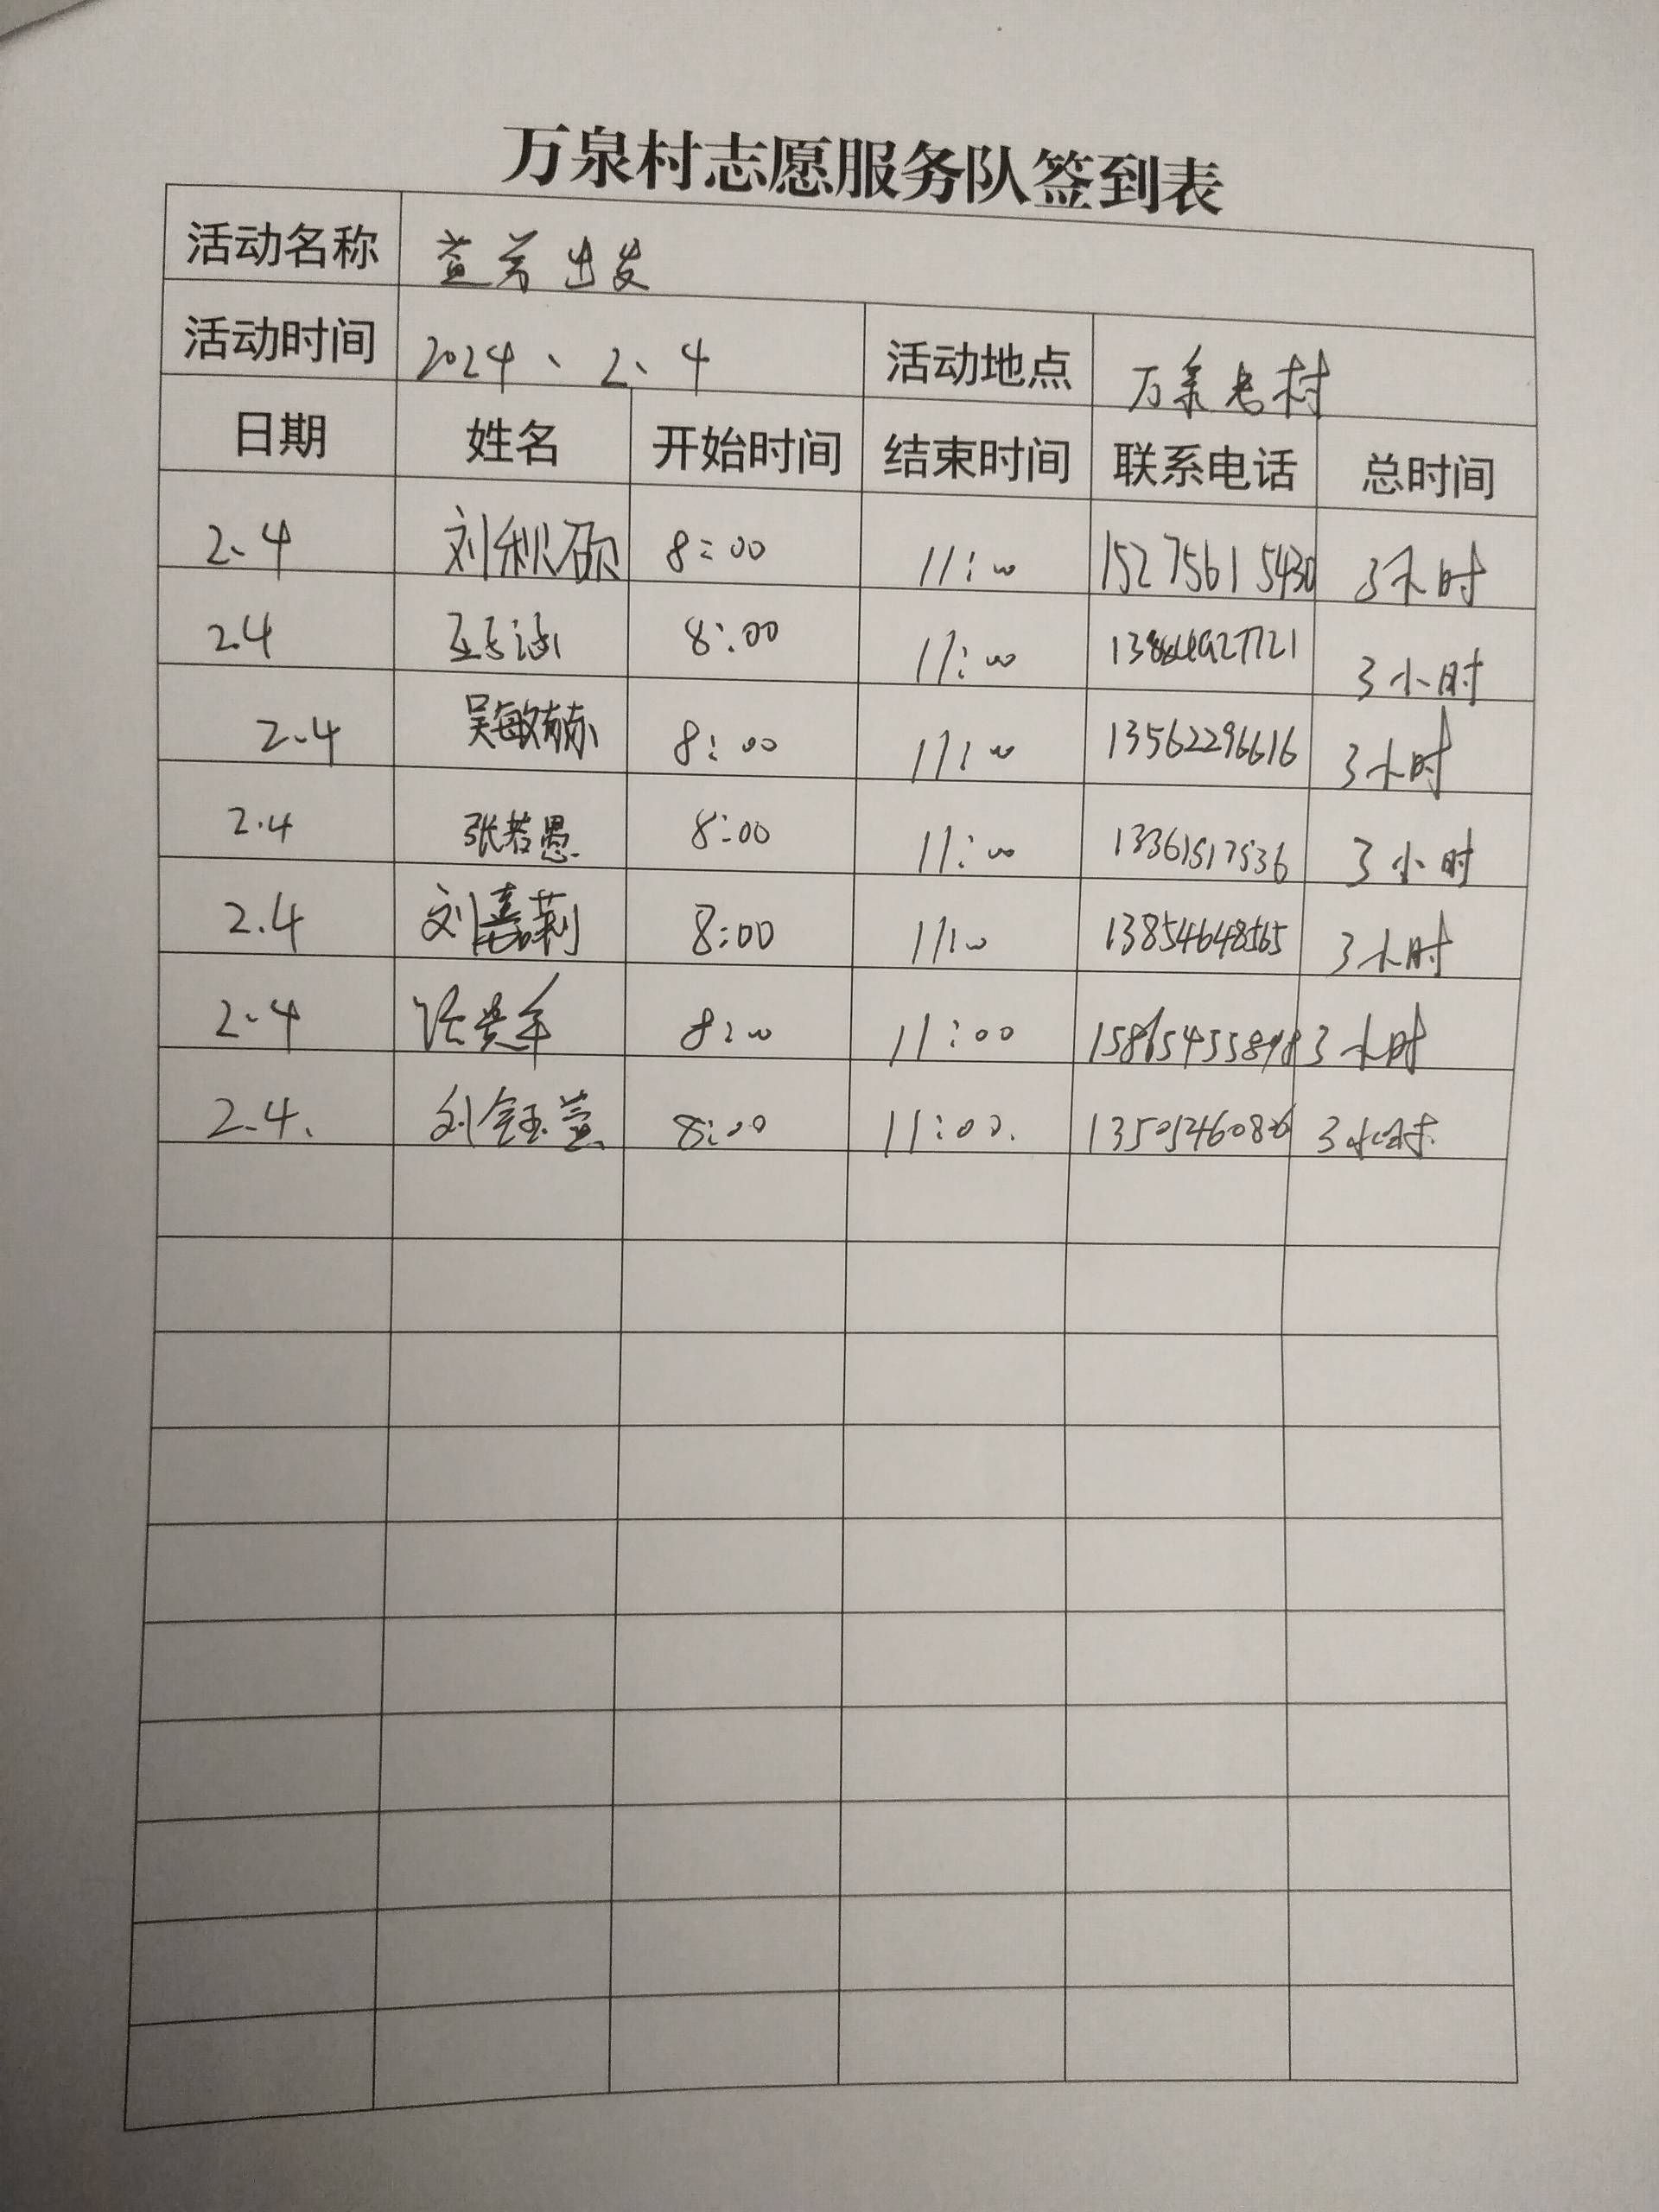 万泉村志愿服务队签到表
活动名称 出发
活动时间 2024、2、4 活动地点 万泉老村
日期 姓名 开始时间 结束时间 联系电话 总时间
2、4 刘秋硕 8:00 11:00 15275615430 3小时
2.4 8:00 11:00 3小时
2、4 吴敏 8:00 11:00 13562296616 3小时
2.4 张若愚 8:00 11:00 13361517536 3小时
2.4 刘嘉莉 8:00 11:00 13854648565 3小时
2、4 8:00 11:00 3小时
2.4、 刘钰萱 8:00 11:00. 3小时